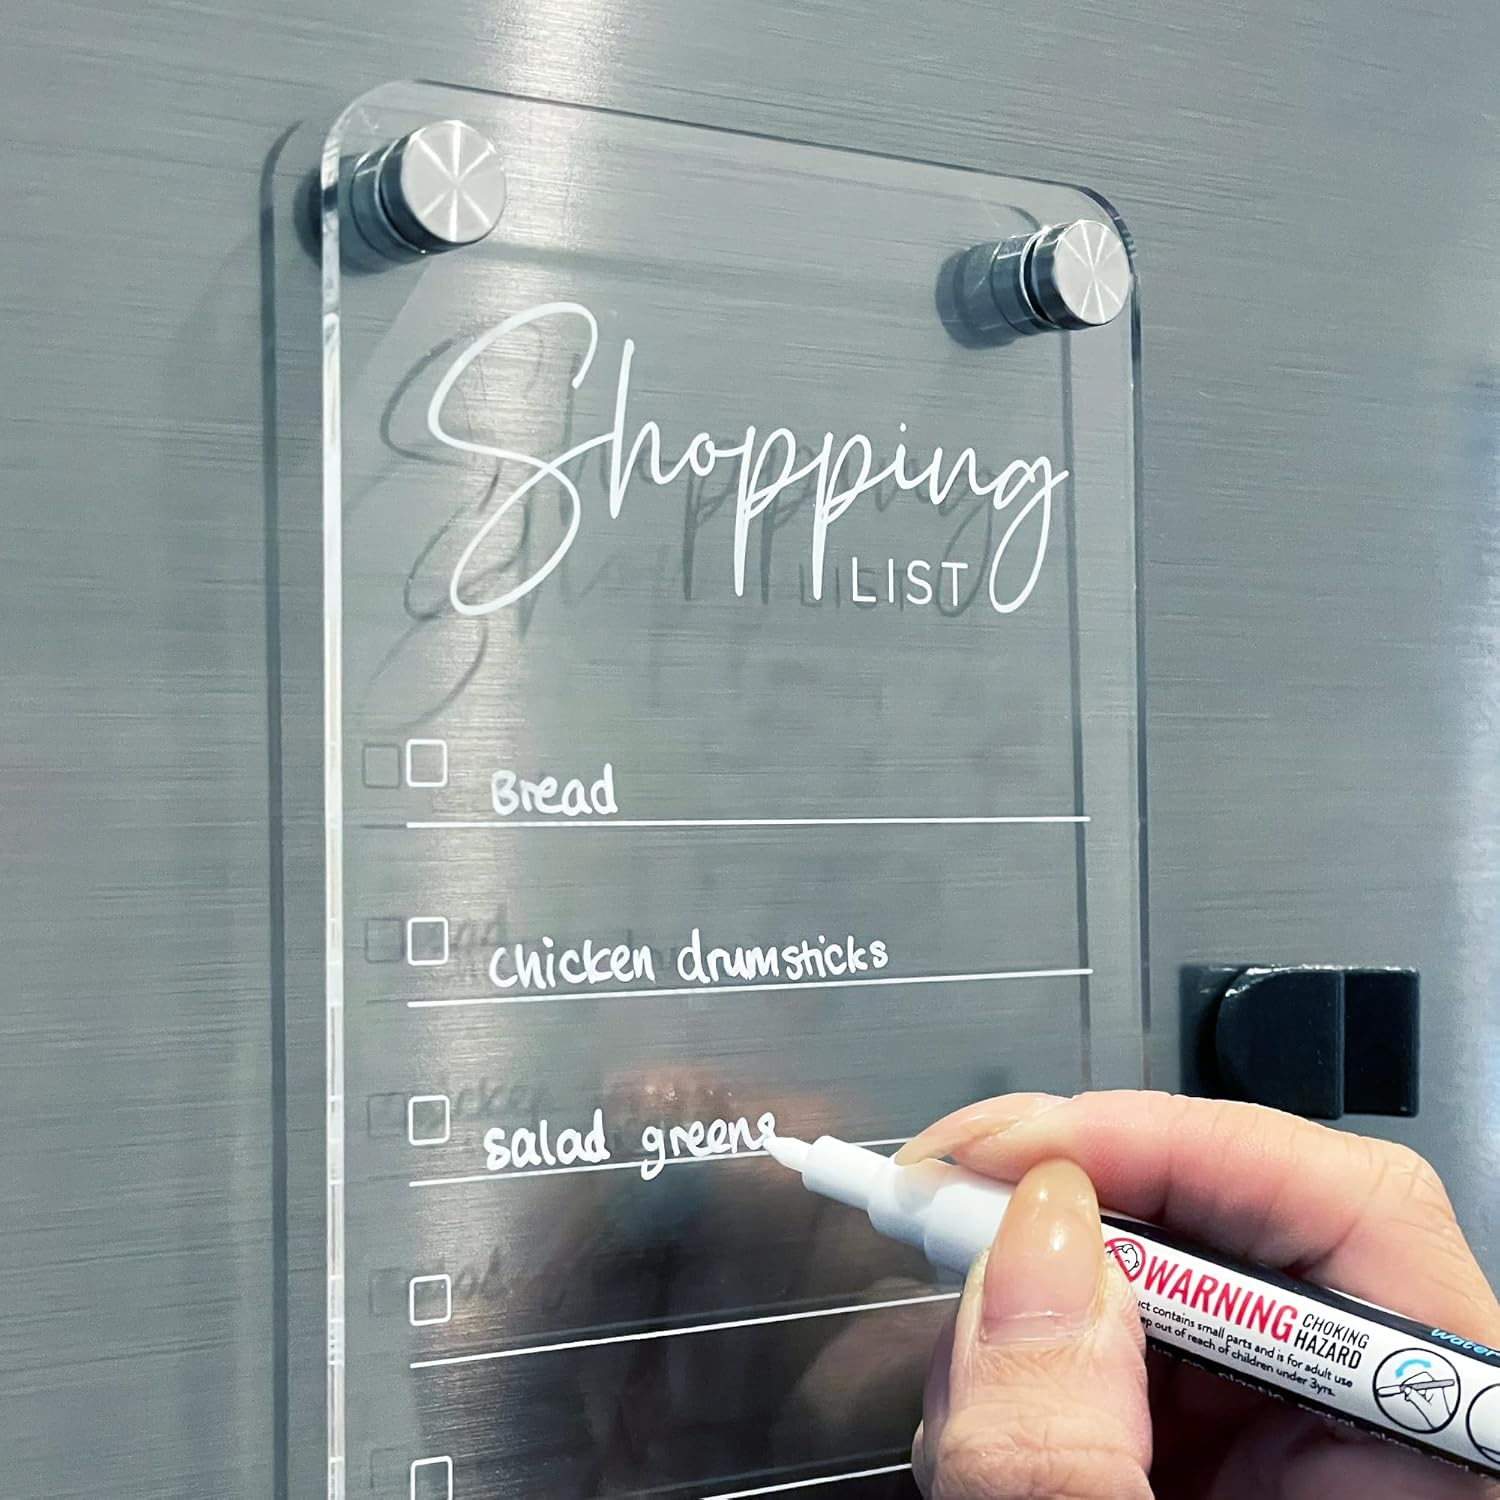 Shopping
LIST
Bread
chicken drumsticks
salad greens
WARNING
CHOKING
HAZARD
contains small parts and is for adult use
out of reach of children under 3yrs.